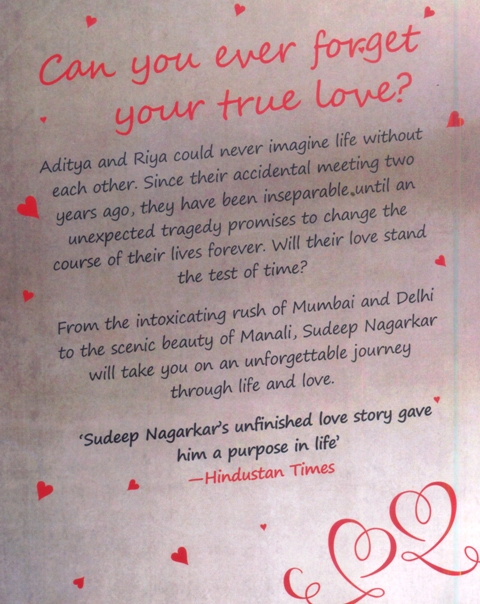 Can you ever forget
your true love?
Aditya and Riya could never imagine life without
each other. Since their accidental meeting two
years ago, they have been inseparable, until an
unexpected tragedy promises to change the
course of their lives forever. Will their love stand
the test of time?
From the intoxicating rush of Mumbai and Delhi
to the scenic beauty of Manali, Sudeep Nagarkar
will take you on an unforgettable journey
through life and love.
‘Sudeep Nagarkar’s unfinished love story gave
him a purpose in life’
—Hindustan Times